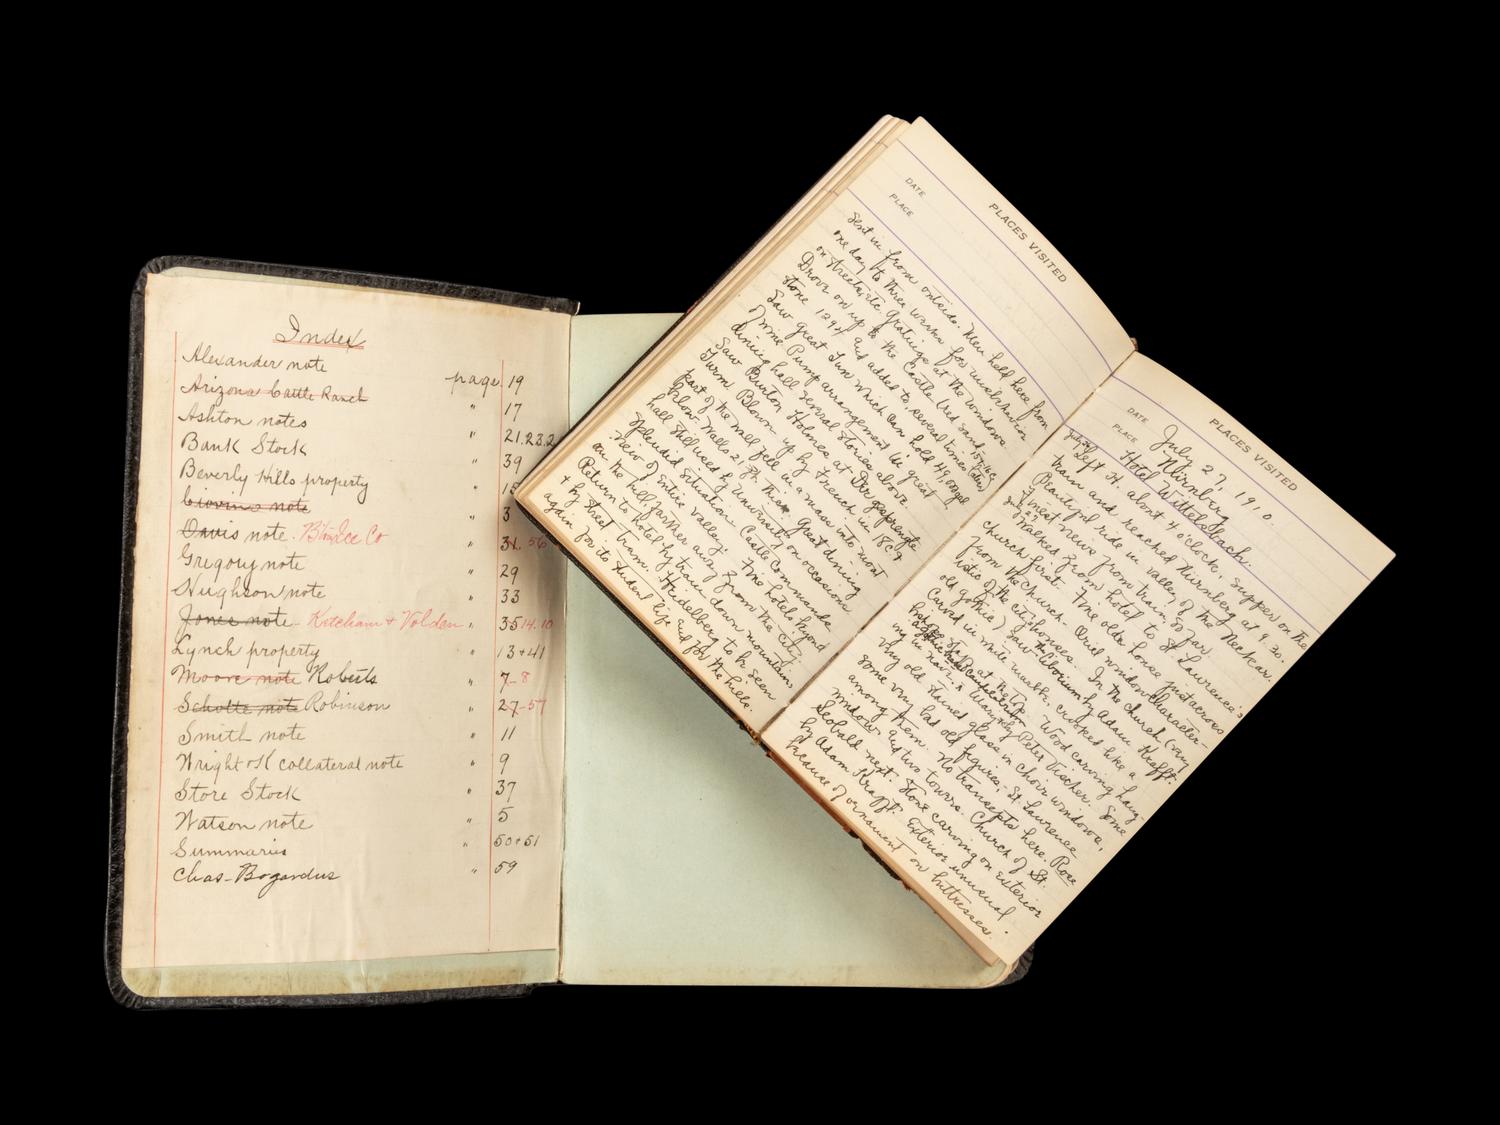 Index
Alexander note page 19
Arizona Cattle Ranch " 17
Ashton notes " 21.23.2
Bank Stock " 39
Beverly Hills property " 15
note " 3
Davis note. Ice Co " 31. 56
Gregory note " 29
Hughson note " 33
Jones note - Ketcham & Volden " 35 14.10
Lynch property " 13+41
Moore note Roberts " 7-8
Scholte note Robinson " 27-57
Smith note " 11
Wright & K collateral note " 9
Store Stock " 37
Watson note " 5
Summaries " 50+51
Chas - Bogardus " 59
PLACES VISITED
DATE
PLACE
sent in from outside. Men held here from
one day to three weeks for misbehavior
on streets, etc. Gratings at the windows.
Drove on up to the Castle (red sand-
stone 1294 and added to, several times later)
Saw great Tun which can hold 49,000 gal
of wine. Pump arrangement in great
dining hall several stories above.
Saw Burton Holmes at Der gesprengte
Turm. Blown up by French in
part of the wall fell in a mass into moat
below. Walls 21 ft. thick. Great dining
hall still used by University on occasions
Splendid situation. Castle commands
view of entire valley. Fine hotels beyond
on the hill farther away from the city.
Return to hotel by train down mountain,
& by street tram. Heidelberg to be seen
again for its student life and for the hills.
PLACES VISITED
DATE July 27, 1910.
PLACE Nürnberg
Hotel Wittelsbach.
Left H. about 4 o'clock, supper on the
train and reached Nürnberg at 9.30.
Beautiful ride in valley of the Neckar.
Finest views from train, so far.
July 27 Walked from hotel to St. Lawrence's
church first. Fine older house just across
from the church - Oriel window character-
istic of the city houses. In the church (very
old gothic) saw the ciborium by Adam Krafft.
Carved in white marble, crooked like a
at the top. Wood carving hang-
ing in nave by Peter Vischer. Some
very old stained glass in choir windows,
some very bad old figures. St. Lawrence
among them. No transepts here. Rose
window and two towers. Church of St.
Sebald next. Stone carving on exterior
by Adam Krafft. Exterior unusual
because of ornament on buttresses.